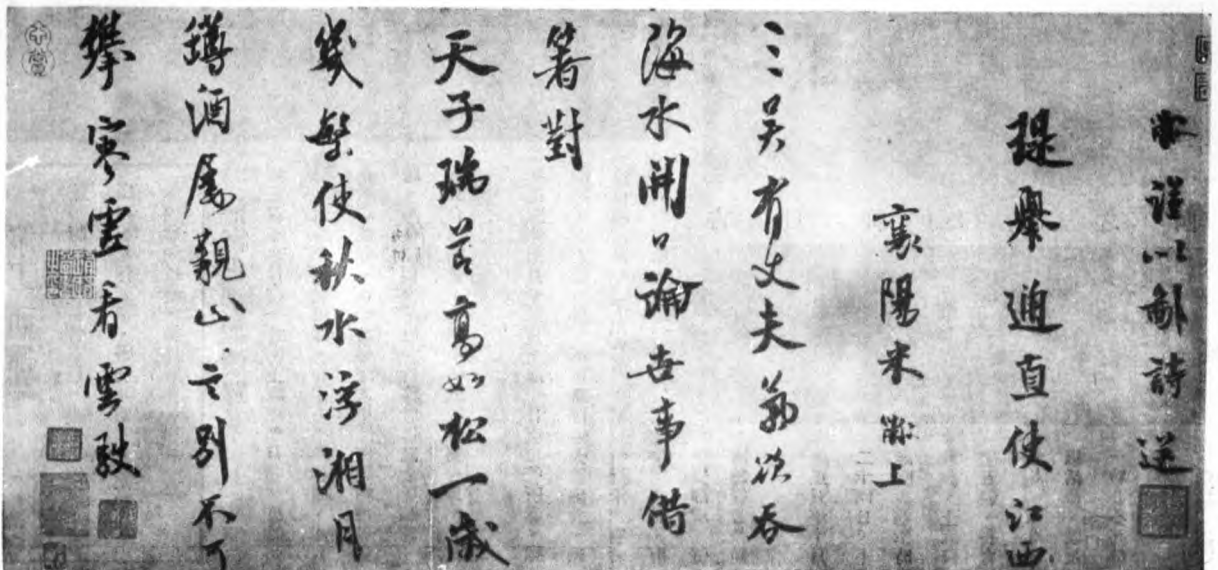 黻謹以鄙詩送
提舉通直使江西
襄陽米黻上
三吳有丈夫氣欲吞
海水開口論世事借
箸對
天子瑞節高如松一歲
幾繁使秋水浮湘月
罇酒屢覯止言別不可
攀雲看雲駛